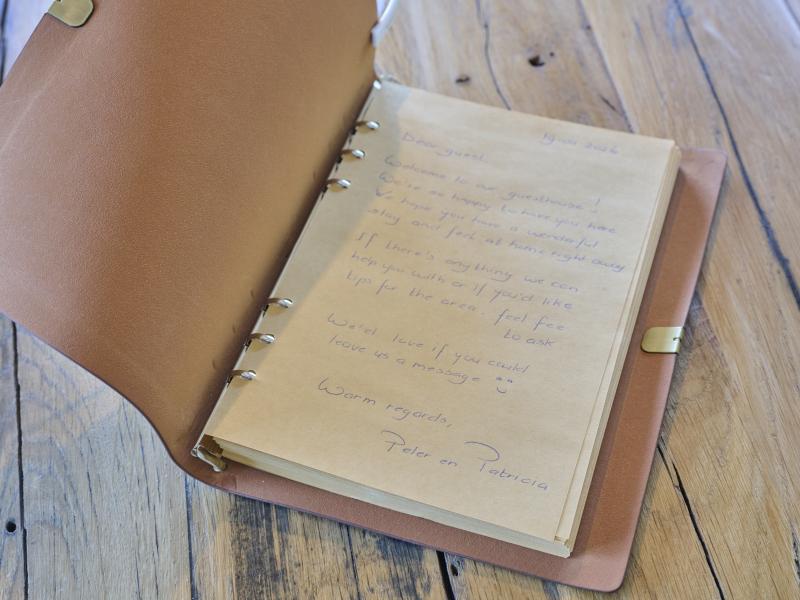 2026
Dear guest,
Welcome to our guesthouse!
We're so happy to have you here
We hope you have a wonderful
stay and feel at home right away
If there's anything we can
help you with or if you'd like
tips for the area, feel fee
to ask
We'd love if you could
leave us a message
Warm regards,
Peter en Patricia